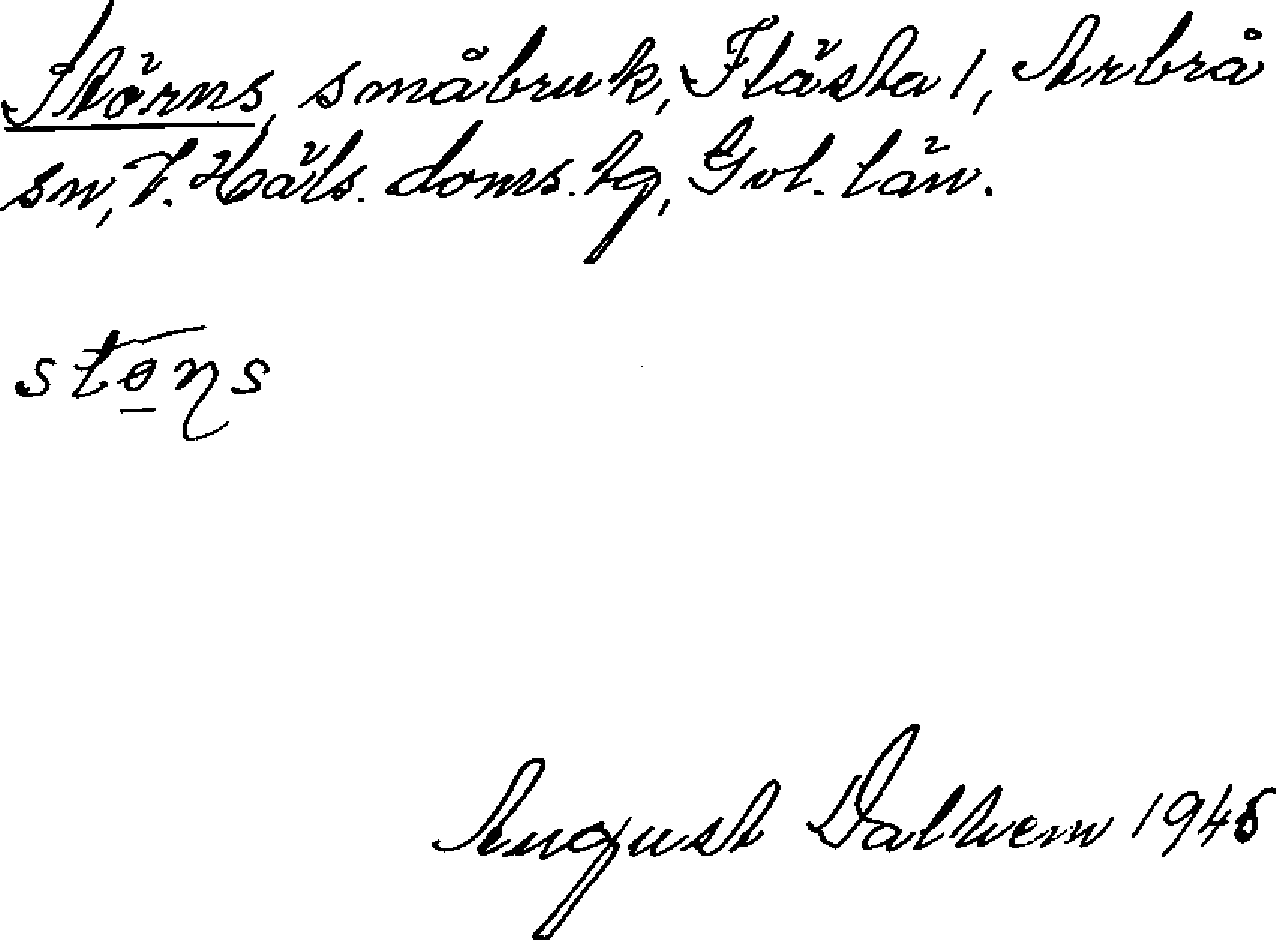 Störns, småbruk, Flästa 1, Arbrå
sn, V. Häls. doms. tg, Gvl. län.
stɵ̲ɳs
August Dalhem 1945